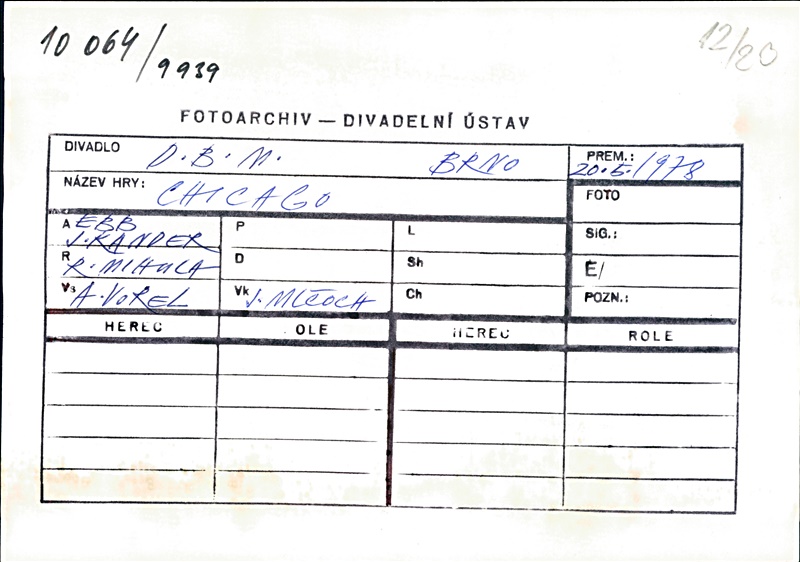 10 064/9939
12/20
FOTOARCHIV — DIVADELNÍ ÚSTAV
DIVADLO D.B.M. BRNO
PREM.: 20.5./1978
NÁZEV HRY: CHICAGO
FOTO
A EBB
J.KANDER
P
L
SIG.:
R R.MIHULA
D
Sh
É/
Vs A.VOREL
Vk J.MLČOCH
Ch
POZN.:
HEREC OLE HEREC ROLE